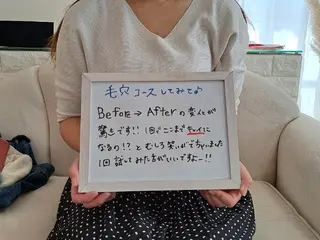 毛穴コースしてみて♪
Before→Afterの変化が
驚きです!! 1回でここまでキレイに
なるの!?とむしろ笑いがでちゃいました
1回試してみた方がいいですよー!!